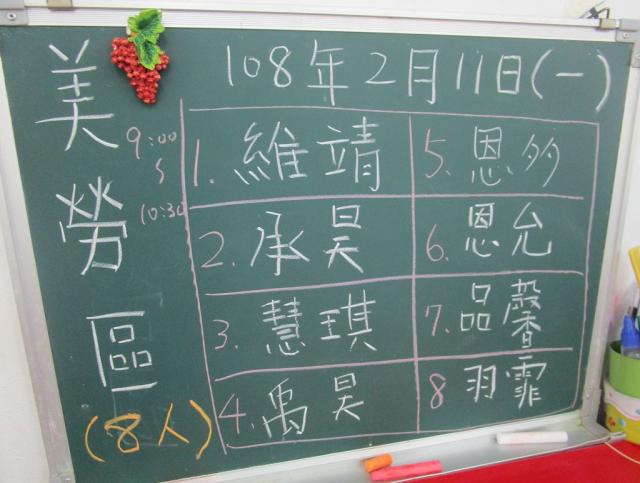 108年2月11日(一)
美勞區
(8人)
9:00
~
10:30
1. 維靖
2. 承昊
3. 慧琪
4. 禹昊
5. 恩多
6. 恩允
7. 品馨
8 羽霏